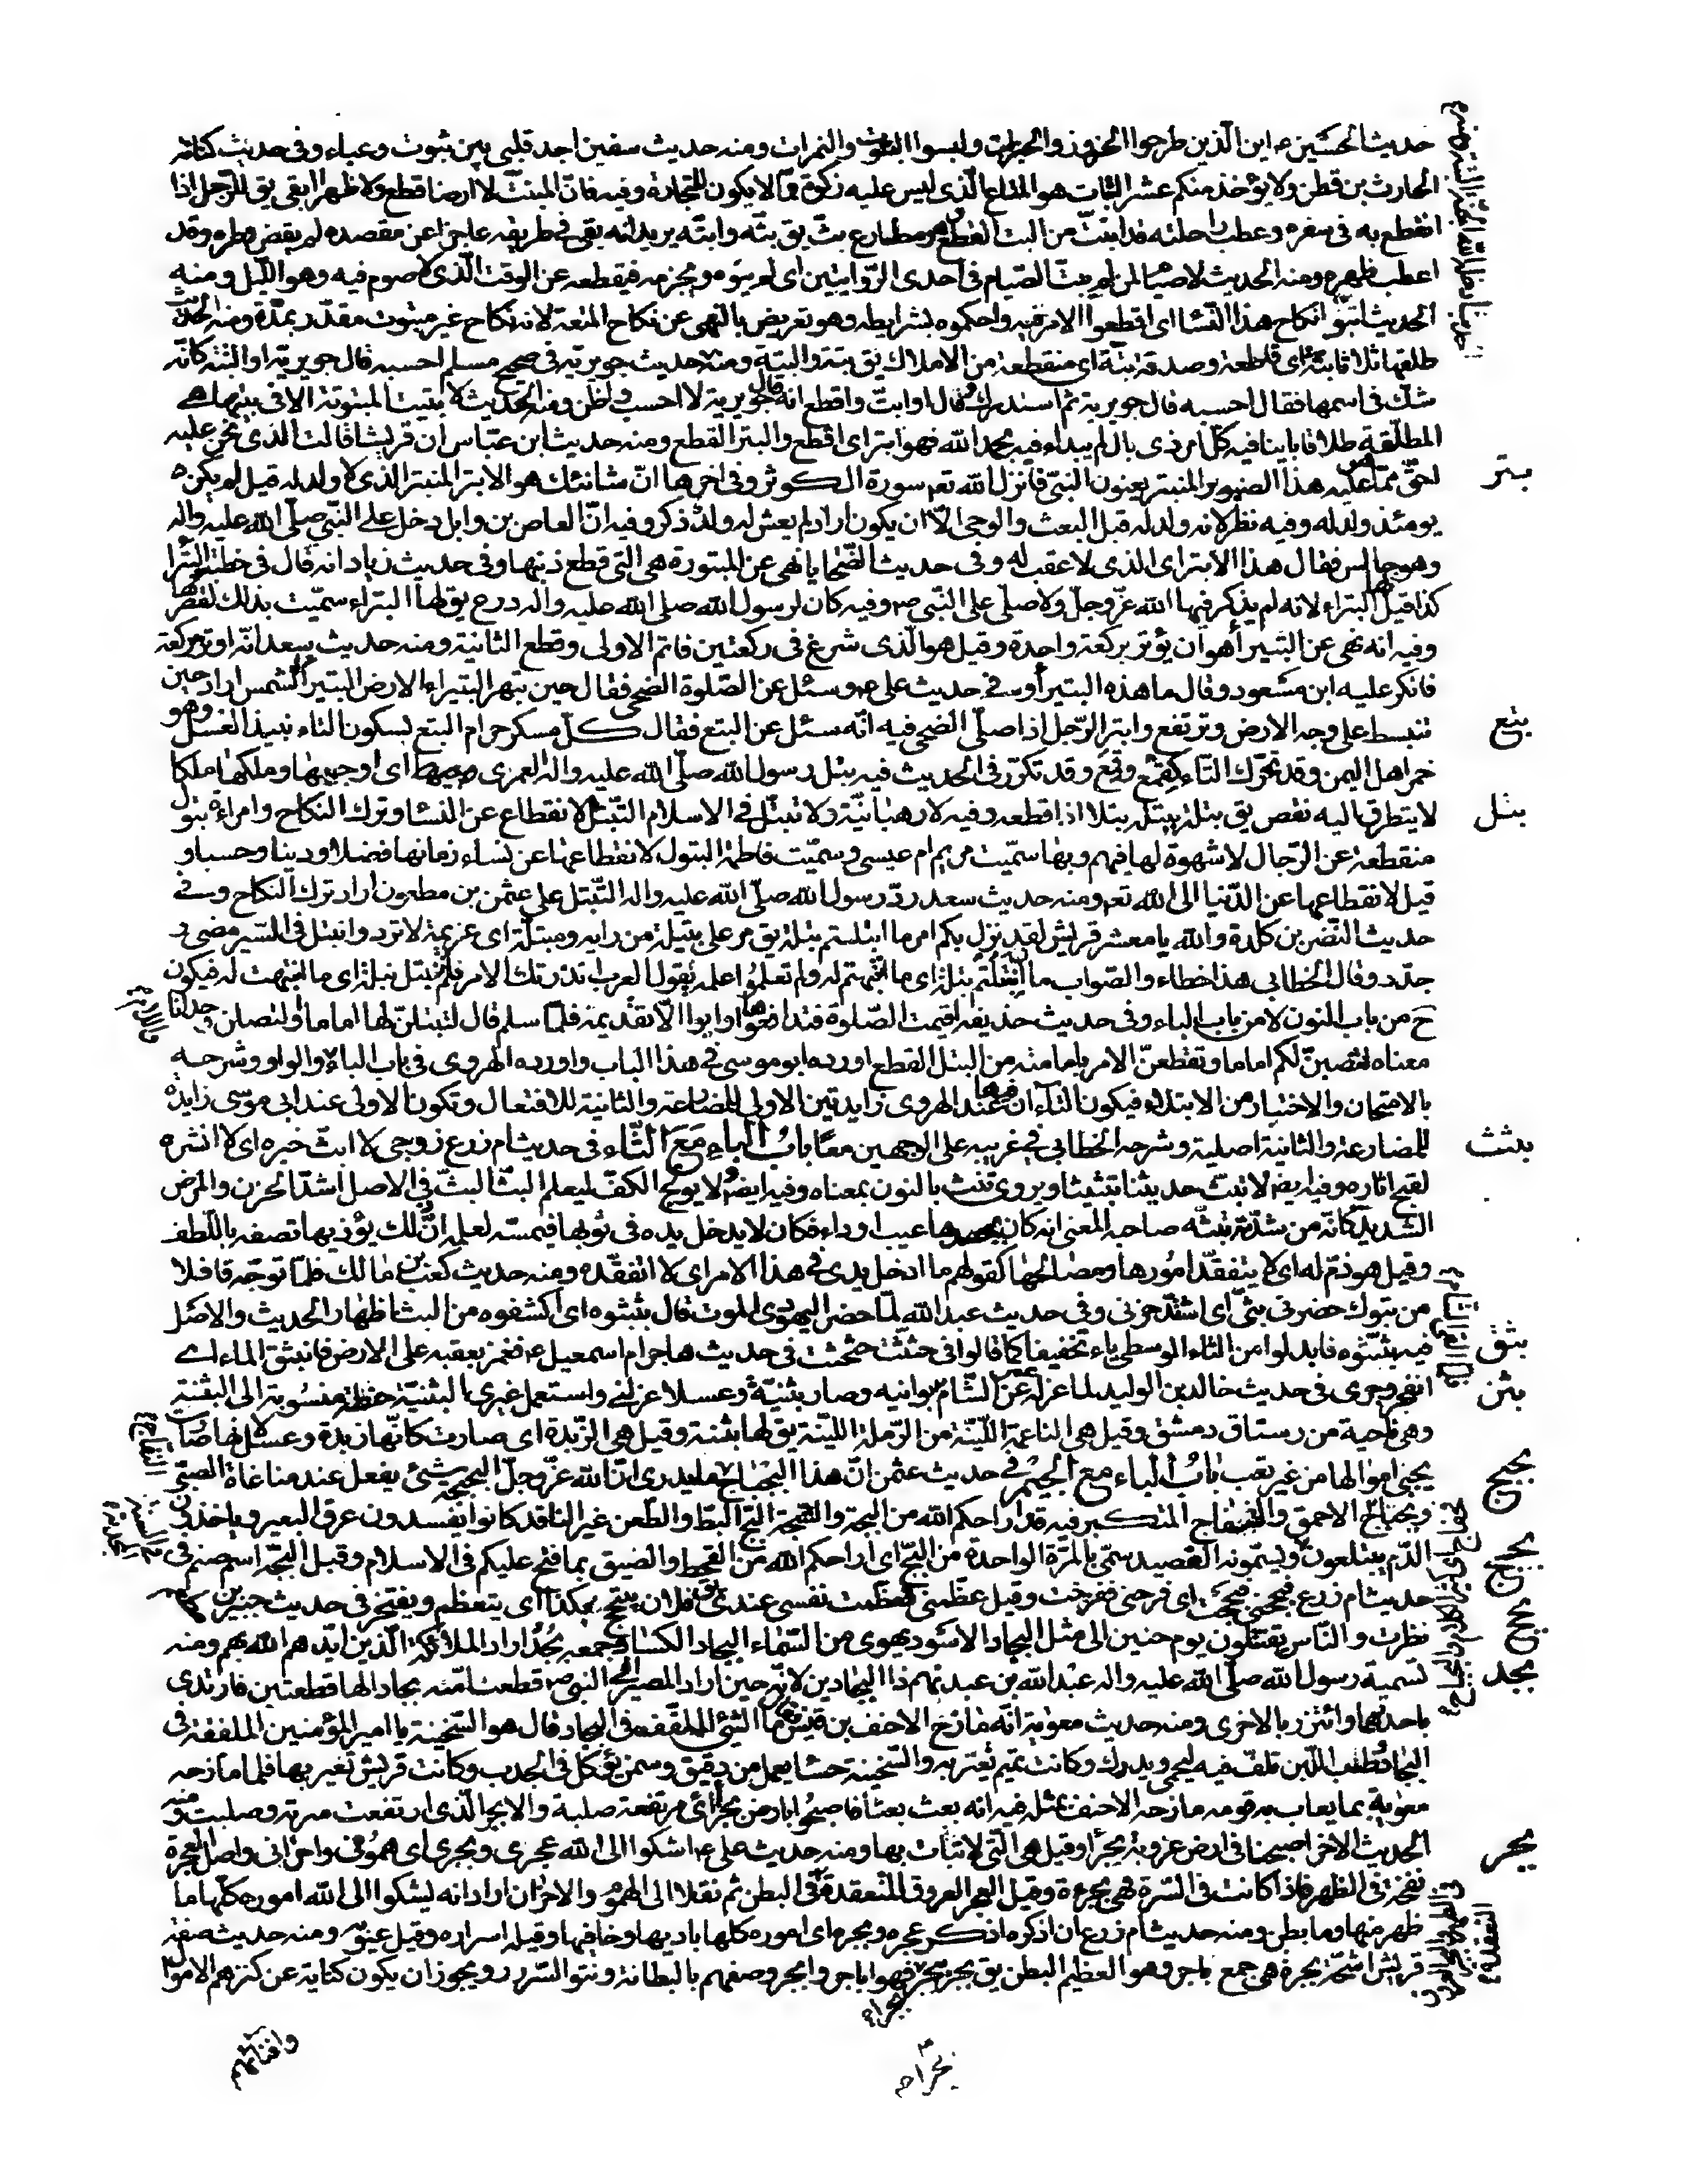 حديث الحسين م اين الّذين طرحوا الخزوز والحبرات ولبسوا البتوت والنمرات ومنه حديث سفين اجد قلبى بين بتوت وعباء وفى حديث كتابه
الحارث بن قطن ولا يؤخذ منكم عشر البتات هو المتاع الّذى ليس عليه زكوة ممّا لا يكون للتجارة وفيه فانّ المنبتّ لا ارضا قطع ولا ظهرا ابقى يق للرّجل اذا
انقطع به فى سفره وعطبت راحلته قد انبتّ من البت القطع وهو مطاوع بتّ يق بتّه وابتّه يريد انه بقى فى طريقه عاجزا عن مقصده لم يقض وطره وقد
اعطب ظهره ومنه الحديث لا صيام لمن لم يبتّ الصّيام فى احدى الرّوايتين اى لم ينوه ويجزمه فيقطعه عن الوقت الّذى لا صوم فيه وهو اللّيل ومنه
الحديث ابتّوا نكاح هذا النّسا اى اقطعوا الامر فيه واحكموه بشرايطه وهو تعريض بالنّهى عن نكاح المتعة لانه نكاح غير مبتوت مقدّر بمدّة ومنه الحديث
طلقها ثلاثا بتّة اى قاطعة وصدقة بتّة اى منقطعة من الاملاك يق بتة والبتة ومنه حديث جويرية فى صحيح مسلم احسبه قال جويرية او البتة كانّه
شك فى اسمها فقال احسبه قال جويرية ثم استدرك فقال او ابتّ واقطع انه قال جويرية لا احسب واظن ومنه الحديث لا تبيت المبتوتة الا فى بيتها هے
المطلّقة طلاقا باينا فيه كلّ امر ذى بال لم يبداء فيه بحمد الله فهو ابتر اى اقطع والبتر القطع ومنه حديث ابن عبّاس ان قريشا قالت الذى نحن عليه
بتر
احقّ ممّا هو عليه هذا الصنبور المنبتر يعنون النبّى فانزل الله تعم سورة الكوثر وفى اخرها انّ شانئك هو الابتر المنبتر الذى لا ولد له قيل لم يكن ه
يومئذ ولد له وفيه نظر لانه ولد له قبل البعث والوحى الّا ان يكون اراد لم يعش له ولد ذكر وفيه انّ العاص بن وايل دخل على النّبي صلّى الله عليه واله
وهو جالس فقال هذا الابتر اى الذى لا عقب له وفى حديث الضّحايا نهى عن المبتورة هى التى قطع ذنبها وفى حديث زياد انه قال فى خطبته البتراء
كذا قيل لها البتراء لانه لم يذكر فيها الله عزّ وجلّ ولا صلّى على النّبى ص وفيه كان لرسول الله صلى الله عليه واله درع يق لها البتراء سمّيت بذلك لقصرها
وفيه انه نهى عن البتيرأ هو ان يؤتر بركعة واحدة وقيل هو الّذى شرع فى ركعتين فاتم الاولى وقطع الثانية ومنه حديث سعد انّه اوتر بركعة
فانكر عليه ابن مسعود وقال ما هذه البتيرأ وفے حديث على ع وسئل عن الصّلوة الضحى فقال حين تبهر البتيراء الارض البتيرأ الشمس اراد حين
تنبسط على وجه الارض وترتفع وابتر الرّجل اذا صلّى الضحى فيه انّه سئل عن البتع فقال كلّ مسكر حرام البتع بسكون التاء نبيذ العسل وهو
بتع
خمر اهل اليمن وقد تحرّك التّاء كقمْع وقمَع وقد تكرّر فى الحديث فيه بتل رسول الله صلّى الله عليه واله العمرى اى اوجبها وملكها ملكا
لا يتطرق اليه نقص يق بتله يبتله بتلا اذا قطعه وفيه لا رهبانيّة ولا تبتّل فى الاسلام التّبتّل الانقطاع عن النّسا وترك النكاح وامراة بتول
بتل
منقطعة عن الرّجال لا شهوة لها فيهم وبها سمّيت مريم ام عيسى و سمّيت فاطمة البتول لانقطاعها عن نساء زمانها فضلا ودينا وحسبا و
قيل لانقطاعها عن الدّنيا الى الله تعم ومنه حديث سعد ردّ رسول الله صلّى الله عليه واله التّبتّل على عثمن بن مظعون اراد ترك النكاح وفے
حديث النّضر بن كلدة والله يا معشر قريش لقد نزل بكم امر ما ابتلتم بتله يق مر على بتيلة من رايه ومبتلّة اى عزيمة لا تردّ وانبتل فى السّير مضى و
جدّد وقال الخطابى هذا خطاء والصّواب ما انتبلتم نبله اى ما انتبهتم له ولم تعلموا علمه يقول العرب انذرتك الامر فلم تنتبل نبله اى ما انتبهت له فيكون
ح من باب النون لا من باب الباء وفى حديث حذيفة اقيمت الصّلوة فتدافعوها وابوا الّا تقديمه فلمّا سلم قال لتبتلنّ لها اماما او لتصلن وحدانا
معناه لتنصبنّ لكم اماما وتقطعنّ الامر بامامته من البتل القطع اورده ابو موسى فے هذا الباب واورده الهروى فى باب الباء والواو وشرحه
بالامتحان والاختبار من الابتلاء فيكون التاان فيها عند الهروى زايدتين الاولى للمضارعة والثانية للافتعال وتكون الاولى عند ابى موسى زايدة
للمضارعة والثانية اصلية وشرحه الخطابى فے غريبه على الوجهين معا باب الباء مع الثّاء فى حديث ام زرع زوجى لا ابثّ خبره اى لا انشره
بثث
لقبح اثاره وفيه ايضا لا تبثّ حديثنا تبثيثا ويروى تنثّ بالنون بمعناه وفيه ايضا ولا يولج الكفّ ليعلم البثّ البثّ فى الاصل اشدّ الحزن والمرض
الشديد كانّه من شدّته تبثّه صاحبه المعنى انه كان بجسدها عيب او داء فكان لا يدخل يده فى ثوبها فيمسّه لعلمه انّ ذلك يؤذيها تصفه باللّطف
وقيل هو ذمّ له اى لا يتفقّد امورها ومصالحها كقولهم ما ادخل يدى فى هذا الامر اى لا اتفقّده ومنه حديث كعب بن مالك فلمّا توجّه قافلا
من تبوك حضرنى بثّى اى اشتدّ حزنى وفى حديث عبد الله لمّا حضر اليهودى الموت قال بثبثوه اى اكشفوه من البث اظهار الحديث والاصل
فيه بثّثوه فابدلوا من الثاء الوسطى باء تخفيفا كما قالوا فى حثّثت حثحثت فى حديث هاجر ام اسمعيل ع فغمز بعقبه على الارض فانبثق الماء اے
بثق
انفجر وجرى فى حديث خالد بن الوليد لما عزله عمر عن الشّام بوانيه وصار بثنيّة وعسلا عزلنے واستعمل غيرى البثنيّة حنطة منسوبة الى البثنة
بثن
وهى ناحية من رستاق دمشق وقيل هى الناعمة اللّيّنة من الرّملة اللّينة يق لها بثنة وقيل هى الزّبدة اى صارت كانّها زبدة وعسل لانها صارت
يجبى اموالها من غير تعب باب الباء مع الجيم فے حديث عثمن انّ هذا البجباج لا يدرى اين الله عزّ وجلّ البجبجة شئ يفعل عند مناغاة الصبّى
بجبج
وبجباج الاحمق والنفّاج المتكبر فيه قد اراحكم الله من البجة والسّجة البجّ البطّ والطّعن غير النّافذ كانوا يفسدون عرق البعير و ياخذون
الدّم يتبلّغون ويسمّونه الفصيد سمّى بالمرّة الواحدة من البجّ اى اراحكم الله من القحط والضيق بما فتح عليكم فى الاسلام وقيل البجّة اسم صنم فى
بجج
حديث ام زرع فبجّحنى فبجحت اى فرحنى ففرحت وقيل عظّمنى فعظمت نفسى عندى يق فلان يتبجّح بكذا اى يتعظّم ويفتخر فى حديث جبير بن مطعم
بجح
نظرت والنّاس يقتتلون يوم حنين الى مثل البجاد الاسود يهوى من السّماء البجاد الكساء وجمعه بُجُد اراد الملائكة الّذين ايّدهم الله بهم ومنه
تسمية رسول الله صلّى الله عليه واله عبد الله بن عبد نهم ذا البجادين لانّه حين اراد المصير الى النبى ص قطعت امّه بجادا لها قطعتين فارتدى
بجد
باحديهما وائتزر بالاخرى ومنه حديث معوية انّه مازح الاحنف بن قيس ما الشئ الملفّف فى البجاد قال هو السّخينة يا امير المؤمنين الملفف فى
البجاد وطب اللّبن تلفّ فيه ليحمى ويدرك وكانت تميم تعيّر به والسّخينة حسا يعمل من دقيق وسمن يؤكل فى الجدب وكانت قريش تعير بها فلما مازحه
معوية بما يعاب به قومه مازحه الاحنف بمثله فيه انه بعث بعثا فاصبحوا بارض بجرا اى مرتفعة صلبة والابجر الّذى ارتفعت سرته وصلبت ومنه
الحديث الاخر اصبحنا فى ارض عزوبة بجرا وقيل هى الّتى لا نبات بها ومنه حديث على ع اشكوا الى الله عجرى وبجرى اى همومى واحزانى واصل العجرة
بجر
نفخة فى الظهر فاذا كانت فى السّرة فهى بجرة وقيل العجر العروق المتعقدة فى البطن ثم نقلا الى الهموم والاحزان اراد انه يشكوا الى الله اموره كلّها ما
ظهر منها وما بطن ومنه حديث ام زرع ان اذكره اذكر عجره وبجره اى اموره كلها باديها وخافيها وقيل اسراره وقيل عيوبه ومنه حديث صفة
قريش اشحّة بجرة هى جمع باجر وهو العظيم البطن يق بجر يبجر بجرا فهو باجر وابجر وصفهم بالبطانة ونتو السّرر ويجوز ان يكون كناية عن كنزهم الاموال
واقتنائهم